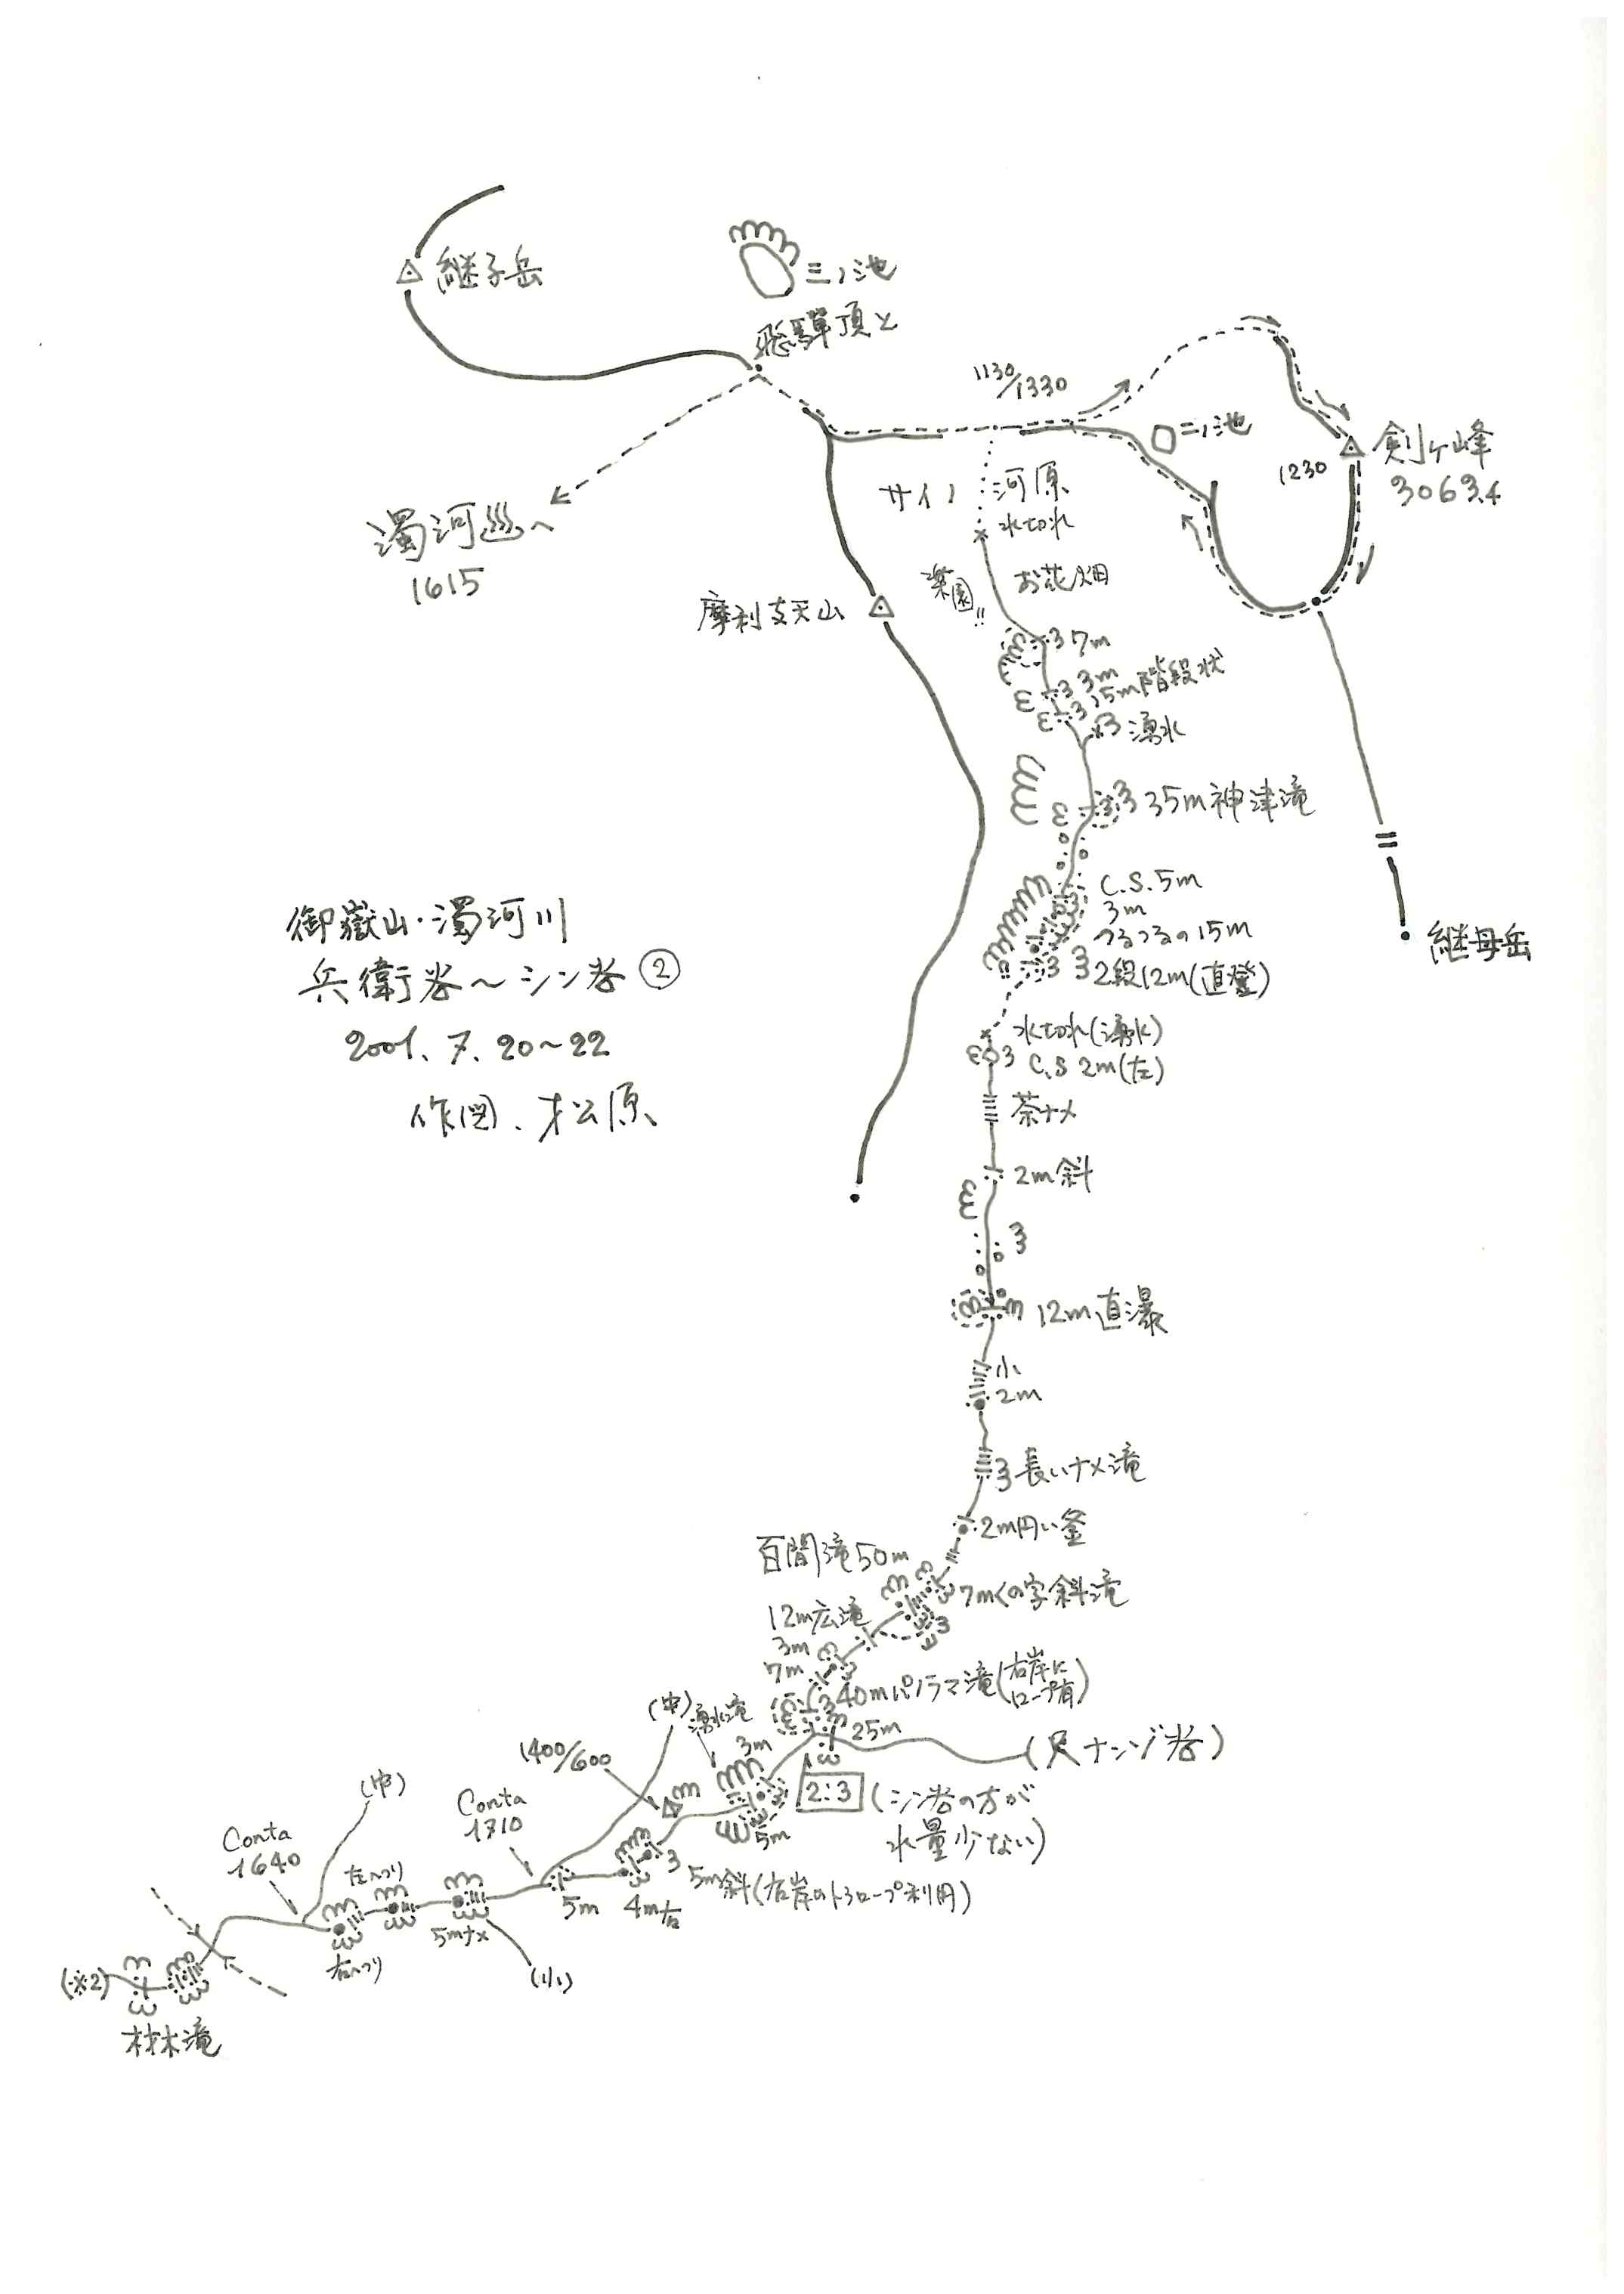 継子岳
三ノ池
飛騨頂上
1130/1330
二ノ池
剣ヶ峰
3063.4
1230
サイノ河原
水切れ
濁河♨へ
1615
楽園!!
お花畑
摩利支天山
7m
3m
15m階段状
湧水
35m神津滝
C.S.5m
3m
つるつるの15m
2段12m(直登)
継母岳
御嶽山・濁河川
兵衛谷~シン谷②
2001.7.20~22
作図、松原
水切れ(湧水)
C.S 2m(左)
茶ナメ
2m斜
12m直瀑
小
2m
長いナメ滝
2m円い釜
百間滝50m
7mくの字斜滝
12m広滝
3m
7m
40mパノラマ滝(右岸にロープ有)
25m
(尺ナンゾ谷)
2:3
(シン谷の方が
水量少ない)
(中)
湧水滝
3m
5m
1400/600
5m斜(右岸のトラロープ利用)
4m右
5m
Conta
1710
(中)
Conta
1640
左へつり
5mナメ
右へつり
(小)
(※2)
材木滝